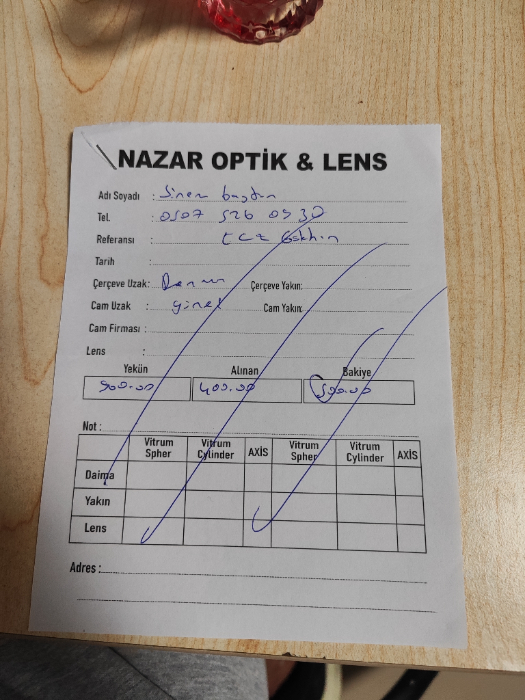 NAZAR OPTİK & LENS
Adı Soyadı :
Tel. : 0507 526 0930
Referansı :
Tarih :
Çerçeve Uzak: Çerçeve Yakın:
Cam Uzak : Cam Yakın:
Cam Firması :
Lens :
Yekün Alınan Bakiye
900.00 400.00 500.00
Not :
Vitrum Spher Vitrum Cylinder AXİS Vitrum Spher Vitrum Cylinder AXİS
Daima
Yakın
Lens
Adres :